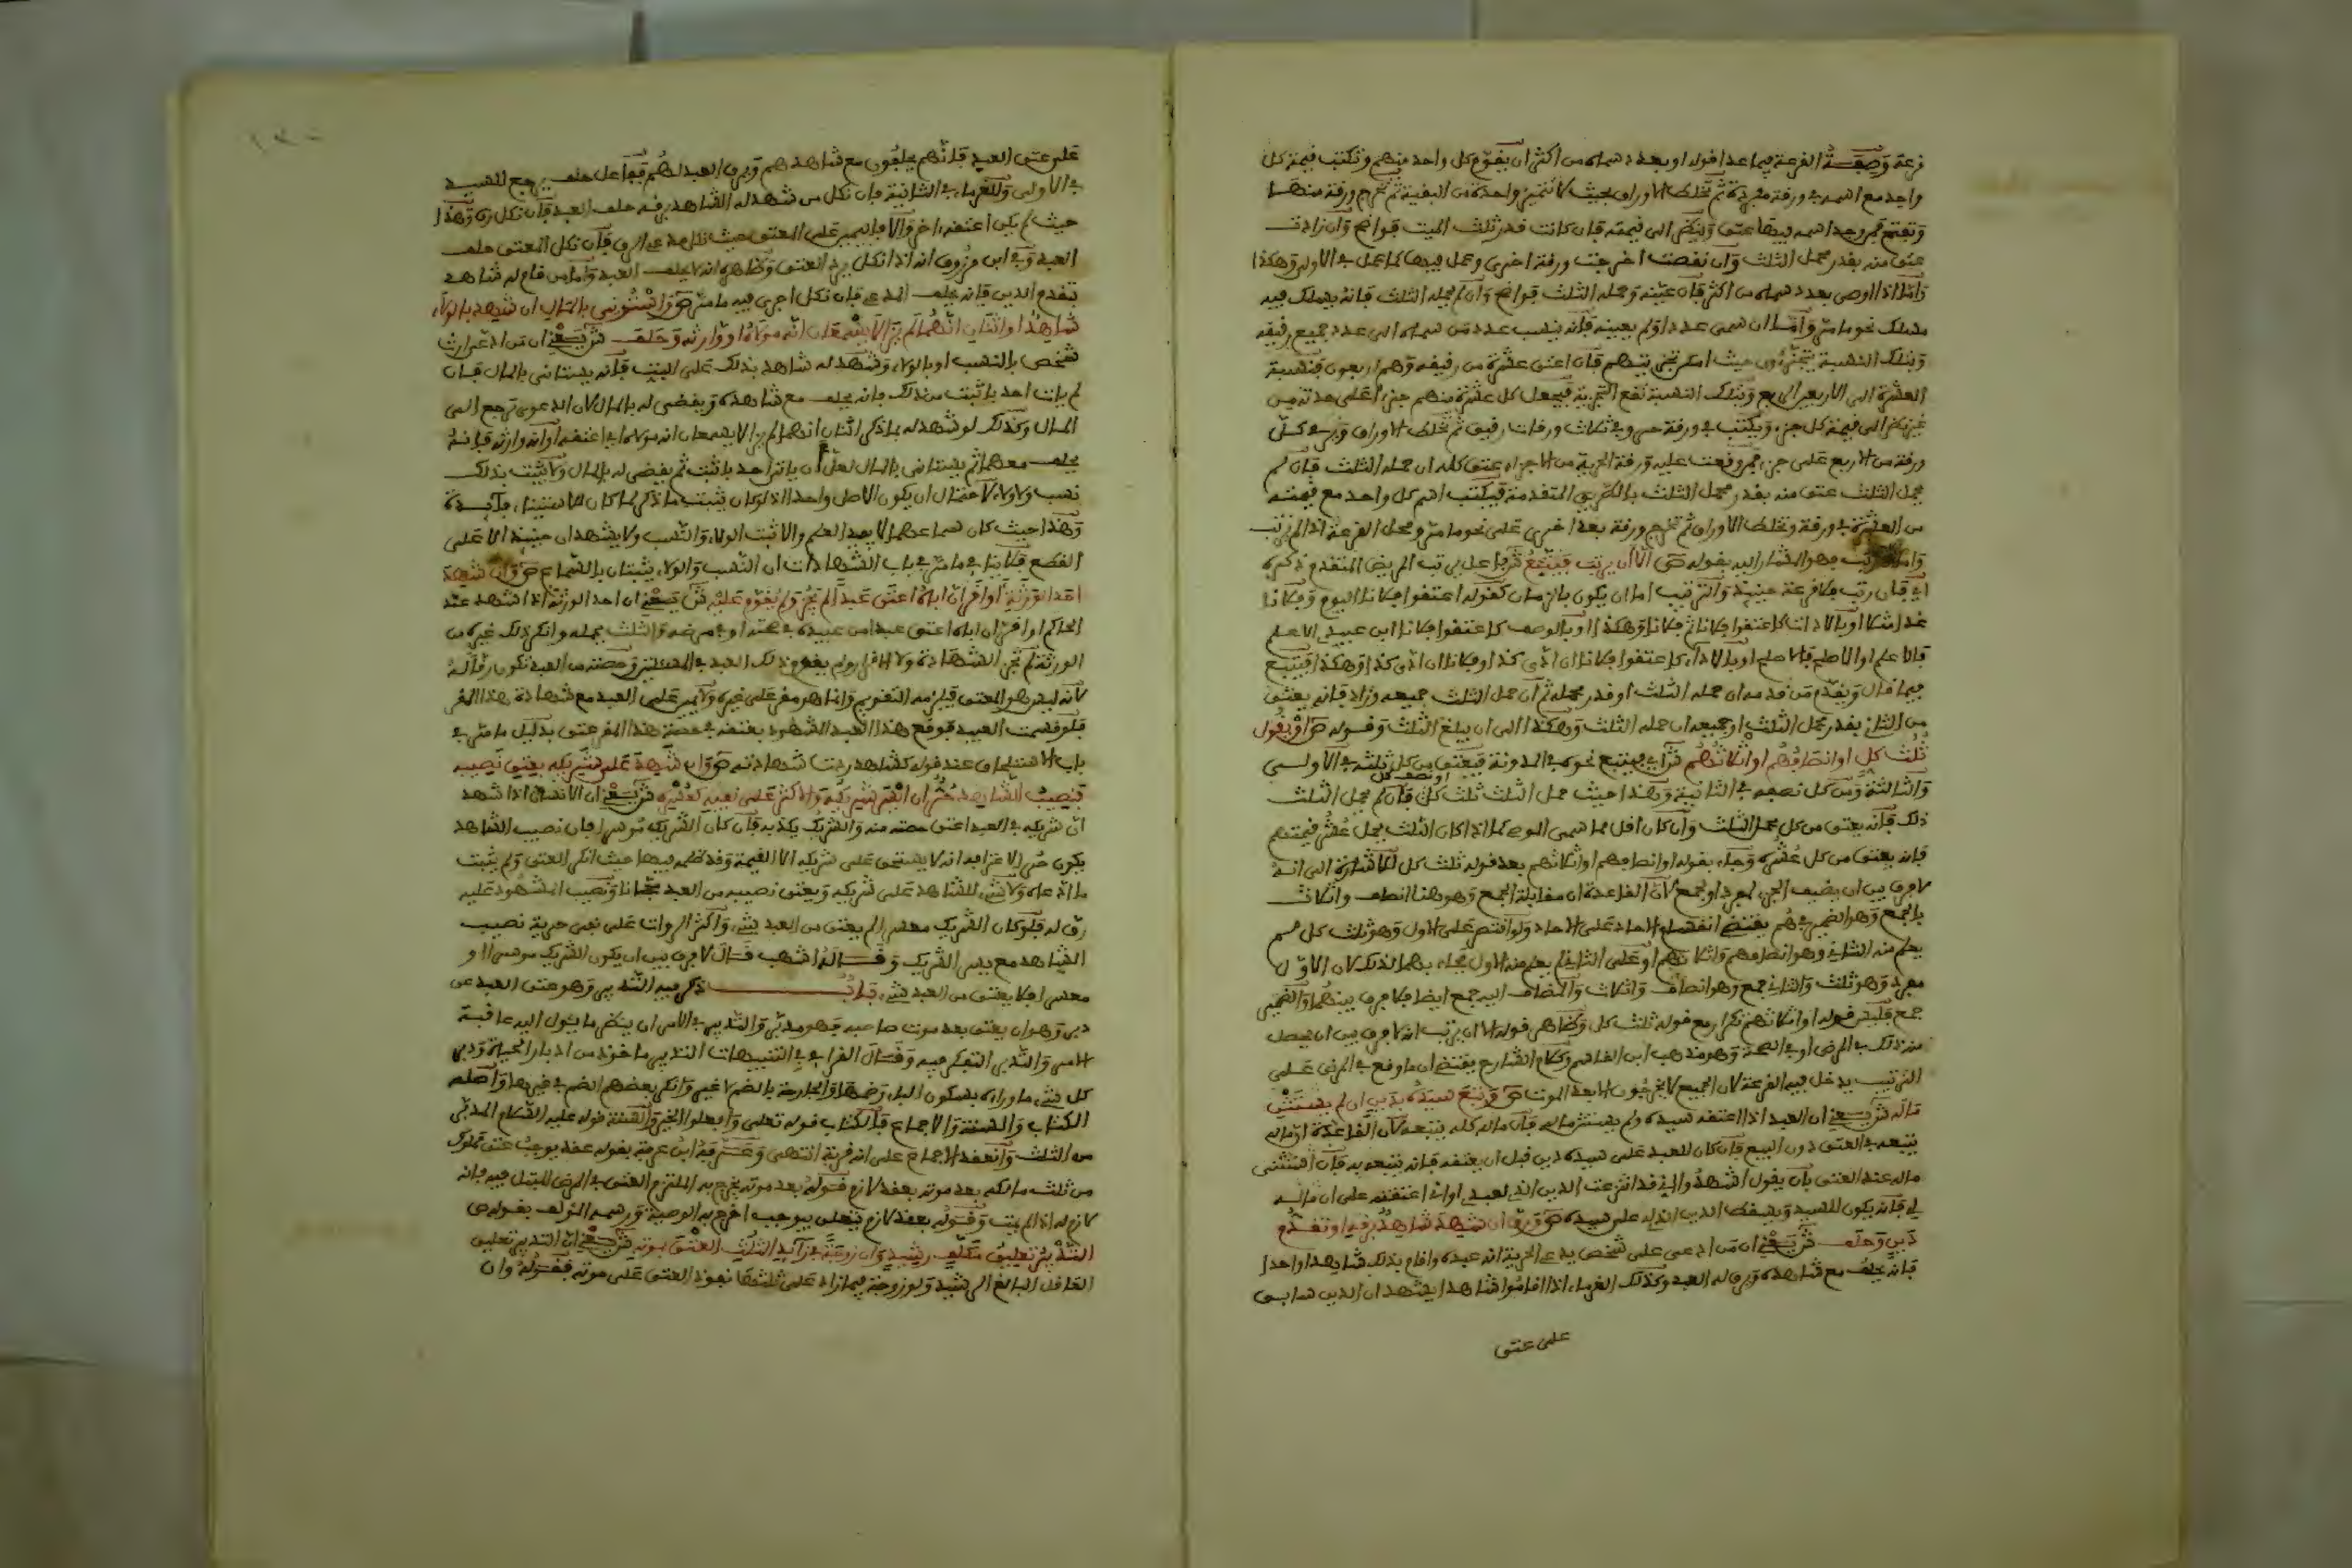 قرعة وصفة القرعة فيما عدا قوله او بعدد سماه من اكثر ان يقوم كل واحد منهم وتكتب قيمة كل
واحد مع اسمه في ورقة مفردة ثم تخلط الاوراق بحيث لا تتميز واحدة من البقية ثم تخرج ورقة منها
وتفتح فمن وجد اسمه فيها عتق وينظر الى قيمته فان كانت قدر ثلث الميت فواضح وان زادت
عتق منه بقدر محمل الثلث وان نقصت اخرجت ورقة اخرى وعمل فيها كما عمل في الاولى وهكذا
واما اذا اوصى بعدد سماه من اكثر فان عينه وحمله الثلث فواضح وان لم يحمله الثلث فانه يسلك فيه
مسلك نحو ما مر واما ان سمى عددا ولم يعينه فانه ينسب عدد من سماه الى عدد جميع رقيقه
وبتلك النسبة يتجزءون حيث امكن تجزيتهم فان اعتق عشرة من رقيقه وهم اربعون فنسبة
العشرة الى الاربعين الربع وبتلك النسبة تقع التجزية فيجعل كل عشرة منهم جزءا على حدته من
غير نظر الى قيمة كل جزء ويكتب في ورقة حر وفي ثلاث ورقات رقيق ثم تخلط الاوراق وترمى كل
ورقة من الاربع على جزء فمن وقعت عليه ورقة الحرية من الاجزاء عتق كله ان حمله الثلث فان لم
يحمل الثلث عتق منه بقدر محمل الثلث بالطريق المتقدمة فيكتب اسم كل واحد مع قيمته
من العشرة في ورقة وتخلط الاوراق ثم تخرج ورقة بعد اخرى على نحو ما مر ومحل القرعة اذا لم يرتب
واما ان رتب فهو المشار اليه بقوله ص الا ان يرتب فيتبع ش فاعل يرتب المريض المتقدم ذكره
اي فان رتب فلا قرعة حينئذ والترتيب اما ان يكون بالزمان كقوله اعتقوا فلانا اليوم وفلانا
غدا مثلا او بالاداة كاعتقوا فلانا ثم فلانا وهكذا او بالوصف كاعتقوا فلانا ابن عبيدي الاعلم
فالاعلم او الاصلح فالاصلح او بالاداء كاعتقوا فلانا ان ادى كذا او فلانا ان ادى كذا وهكذا فيتبع
فيما قال ويقدم من قدمه ان حمله الثلث او قدر محمله ثم ان حمل الثلث جميعه وزاد فانه يعتق
من الثاني بقدر محمل الثلث او جميعه ان حمله الثلث وهكذا الى ان يبلغ الثلث وقوله ص او يقول
ثلث كل او انصافهم او اثلاثهم ش اي فيتبع نحوه في المدونة فيعتق من كل ثلثه في الاولى
والثالثة ومن كل نصفه في الثانية وهذا حيث حمل الثلث ثلث كل او نصف كل فان لم يحمل الثلث
ذلك فانه يعتق من كل محمل الثلث وان كان اقل مما سمى الموصي كما اذا كان الثلث يحمل عشر قيمتهم
فانه يعتق من كل عشره وجاء بقوله او انصافهم او اثلاثهم بعد قوله ثلث كل للاشارة الى انه
لا فرق بين ان يضيف الجزء لمفرد او لجمع لان القاعدة ان مقابلة الجمع وهو هنا انصاف واثلاث
بالجمع وهو الضمير في هم يقتضي انقسام الاحاد على الاحاد ولو اقتصر على الاول وهو ثلث كل لم
يعلم منه الثاني وهو انصافهم واثلاثهم او على الثاني لم يعلم منه الاول فجاء بهما لذلك لان الاول
مفرد وهو ثلث والثاني جمع وهو انصاف واثلاث والمضاف اليه جمع ايضا فلا فرق بينهما والضمير
جمع فليس قوله او اثلاثهم تكرارا مع قوله ثلث كل وظاهر قوله الا ان يرتب انه لا فرق بين ان يحصل
منه ذلك في المرض او في الصحة وهو مذهب ابن القاسم وكلام الشارح يقتضي ان ما وقع في المرض على
الترتيب يدخل فيه القرعة لان الجميع لا يخرجون الا بعد الموت ص وتبع سيده بدين ان لم يستثن
ماله ش يعني ان العبد اذا اعتقه سيده ولم يستثن ماله فان ماله كله يتبعه لان القاعدة ان ماله
يتبعه في العتق دون البيع فان كان للعبد على سيده دين قبل ان يعتقه فانه يتبعه به فان استثنى
ماله عند العتق بان يقول اشهدوا اني قد انتزعت الدين الذي لعبدي او اني اعتقته على ان ماله
لي فانه يكون للسيد ويسقط الدين الذي له على سيده ص ورق ان شهد شاهد برقه او تقدم
دين وحلف ش يعني ان من ادعى على شخص يدعي الحرية انه عبده واقام بذلك شاهدا واحدا
فانه يحلف مع شاهده ويرق له العبد وكذلك الغرماء اذا اقاموا شاهدا يشهد ان الدين سابق
على عتق
على عتق العبد فانهم يحلفون مع شاهدهم ويرق العبد لهم فيها على حلف يرجع للسيد
في الاولى وللغرماء في الثانية فان نكل من شهد له الشاهد برقه حلف العبد فان نكل رق وهذا
حيث لم يكن اعتقه اخر والا فاليمين على المعتق حيث نكل مدعي الرق فان نكل المعتق حلف
العبد وفي ابن مرزوق انه اذا نكل يرد العتق وظاهره انه لا يحلف العبد واما من قام له شاهد
بتقدم الدين فانه يحلف المدعي فان نكل اجرى فيه ما مر ص واستؤني بالمال ان شهد بالولاء
شاهد او اثنان انهما لم يزالا يسمعان انه مولاه او وارثه وحلف ش يعني ان من ادعى ارث
شخص بالنسب او بالولاء وشهد له شاهد بذلك على البت فانه يستانى بالمال فان
لم يات احد باثبت من ذلك فانه يحلف مع شاهده ويقضى له بالمال لان الدعوى ترجع الى
المال وكذلك لو شهد له بما ذكر اثنان انهما لم يزالا يسمعان انه مولاه اي اعتقه او انه وارثه فانه
يحلف معهما ثم يستانى بالمال لعل ان ياتي احد باثبت ثم يقضى له بالمال ولا يثبت بذلك
نسب ولا ولاء لاحتمال ان يكون الاصل واحدا اذ لو كان يثبت ما ذكر لما كان للاستيناء فائدة
وهذا حيث كان سماعهما لا يفيد العلم والا ثبت الولاء والنسب ولا يشهدان حينئذ الا على
القطع فلا ينافي ما مر في باب الشهادات ان النسب والولاء يثبتان بالسماع ص وان شهد
احد الورثة او اقر ان اباه اعتق عبدا لم يجز ولم يقوم عليه ش يعني ان احد الورثة اذا شهد عند
الحاكم او اقر ان اباه اعتق عبدا من عبيده في صحته او في مرضه والثلث يحمله وانكر ذلك غيره من
الورثة لم تجز الشهادة ولا الاقرار ولم يقوم ذلك العبد في المسئلتين وحصته من العبد تكون رقا له
لانه ليس هو المعتق فيلزمه التقويم وانما هو مقر على غيره ولا يمين على العبد مع شهادة هذا المقر
فلو قسمت العبيد فوقع هذا العبد المشهود بعتقه في حصة هذا المقر عتق بدليل ما مر في
باب الاستلحاق عند قوله كشاهد ردت شهادته ص وان شهد على شريكه بعتق نصيبه
فنصيب الشاهد حر ان ايسر شريكه والاكثر على نفيه كعسره ش يعني ان الانسان اذا شهد
ان شريكه في العبد اعتق حصته منه والشريك يكذبه فان كان الشريك موسرا فان نصيب الشاهد
يكون حرا لاعترافه انه لا يستحق على شريكه الا القيمة وقد ظلمه فيها حيث انكر العتق ولم يثبت
ما ادعاه ولا شيء للشاهد على شريكه ويعتق نصيبه من العبد مجانا ونصيب المشهود عليه
رق له فلو كان الشريك معسرا لم يعتق من العبد شيء واكثر الرواة على نفي حرية نصيب
الشاهد مع يسر الشريك وقاله اشهب قال لا فرق بين ان يكون الشريك موسرا او
معسرا فلا يعتق من العبد شيء باب ذكر فيه التدبير وهو عتق العبد عن
دبر وهو ان يعتق بعد موت صاحبه فهو مدبر والتدبير في الامر ان ينظر ما يئول اليه عاقبة
الامر والتدبر التفكر فيه وقال القرافي في التنبيهات التدبير ماخوذ من ادبار الحياة ودبر
كل شيء ما وراءه بسكون الباء وضمها والجارحة بالضم لا غير وانكر بعضهم الضم في غيرها واصله
الكتاب والسنة والاجماع فالكتاب قوله تعلى وافعلوا الخير والسنة قوله عليه السلام المدبر
من الثلث وانعقد الاجماع على انه قربة انتهى وعرفه ابن عرفة بقوله عقد يوجب عتق مملوك
من ثلث مالكه بعد موته بعقد لازم فقوله بعد موته يخرج به الملتزم العتق في المرض المبتل فيه فانه
لازم له اذا لم يمت وقوله بعقد لازم يتعلق بيوجب اخرج به الوصية ورسمه المؤلف بقوله ص
التدبير تعليق مكلف رشيد وان زوجة في زائد الثلث العتق بموته ش يعني ان التدبير تعليق
العاقل البالغ الرشيد ولو زوجة فيما زاد على ثلثها نفوذ العتق على موته فقوله وان